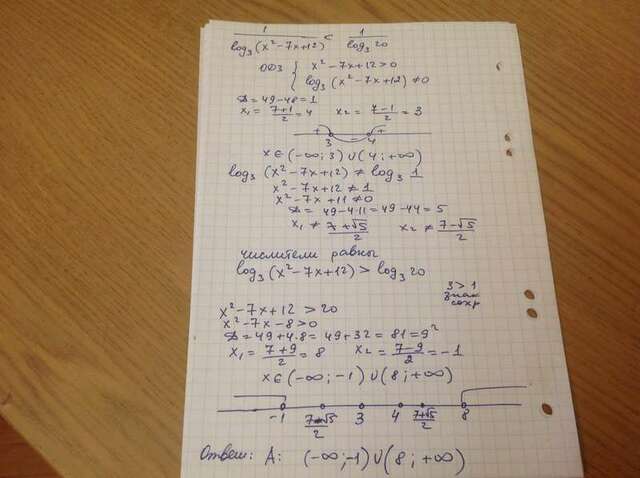 1/log₃(x²-7x+12) < 1/log₃20
ОДЗ { x²-7x+12>0
log₃(x²-7x+12)≠0
D=49-48=1
x₁=(7+1)/2=4 x₂=(7-1)/2=3
+ - +
3 4
x∈(-∞;3)∪(4;+∞)
log₃(x²-7x+12)≠log₃1
x²-7x+12≠1
x²-7x+11≠0
D=49-4·11=49-44=5
x₁≠(7+√5)/2 x₂≠(7-√5)/2
числители равны
log₃(x²-7x+12)>log₃20
3>1
знак
сохр
x²-7x+12>20
x²-7x-8>0
D=49+4·8=49+32=81=9²
x₁=(7+9)/2=8 x₂=(7-9)/2=-1
x∈(-∞;-1)∪(8;+∞)
-1 (7-√5)/2 3 4 (7+√5)/2 8
Ответ: А: (-∞;-1)∪(8;+∞)